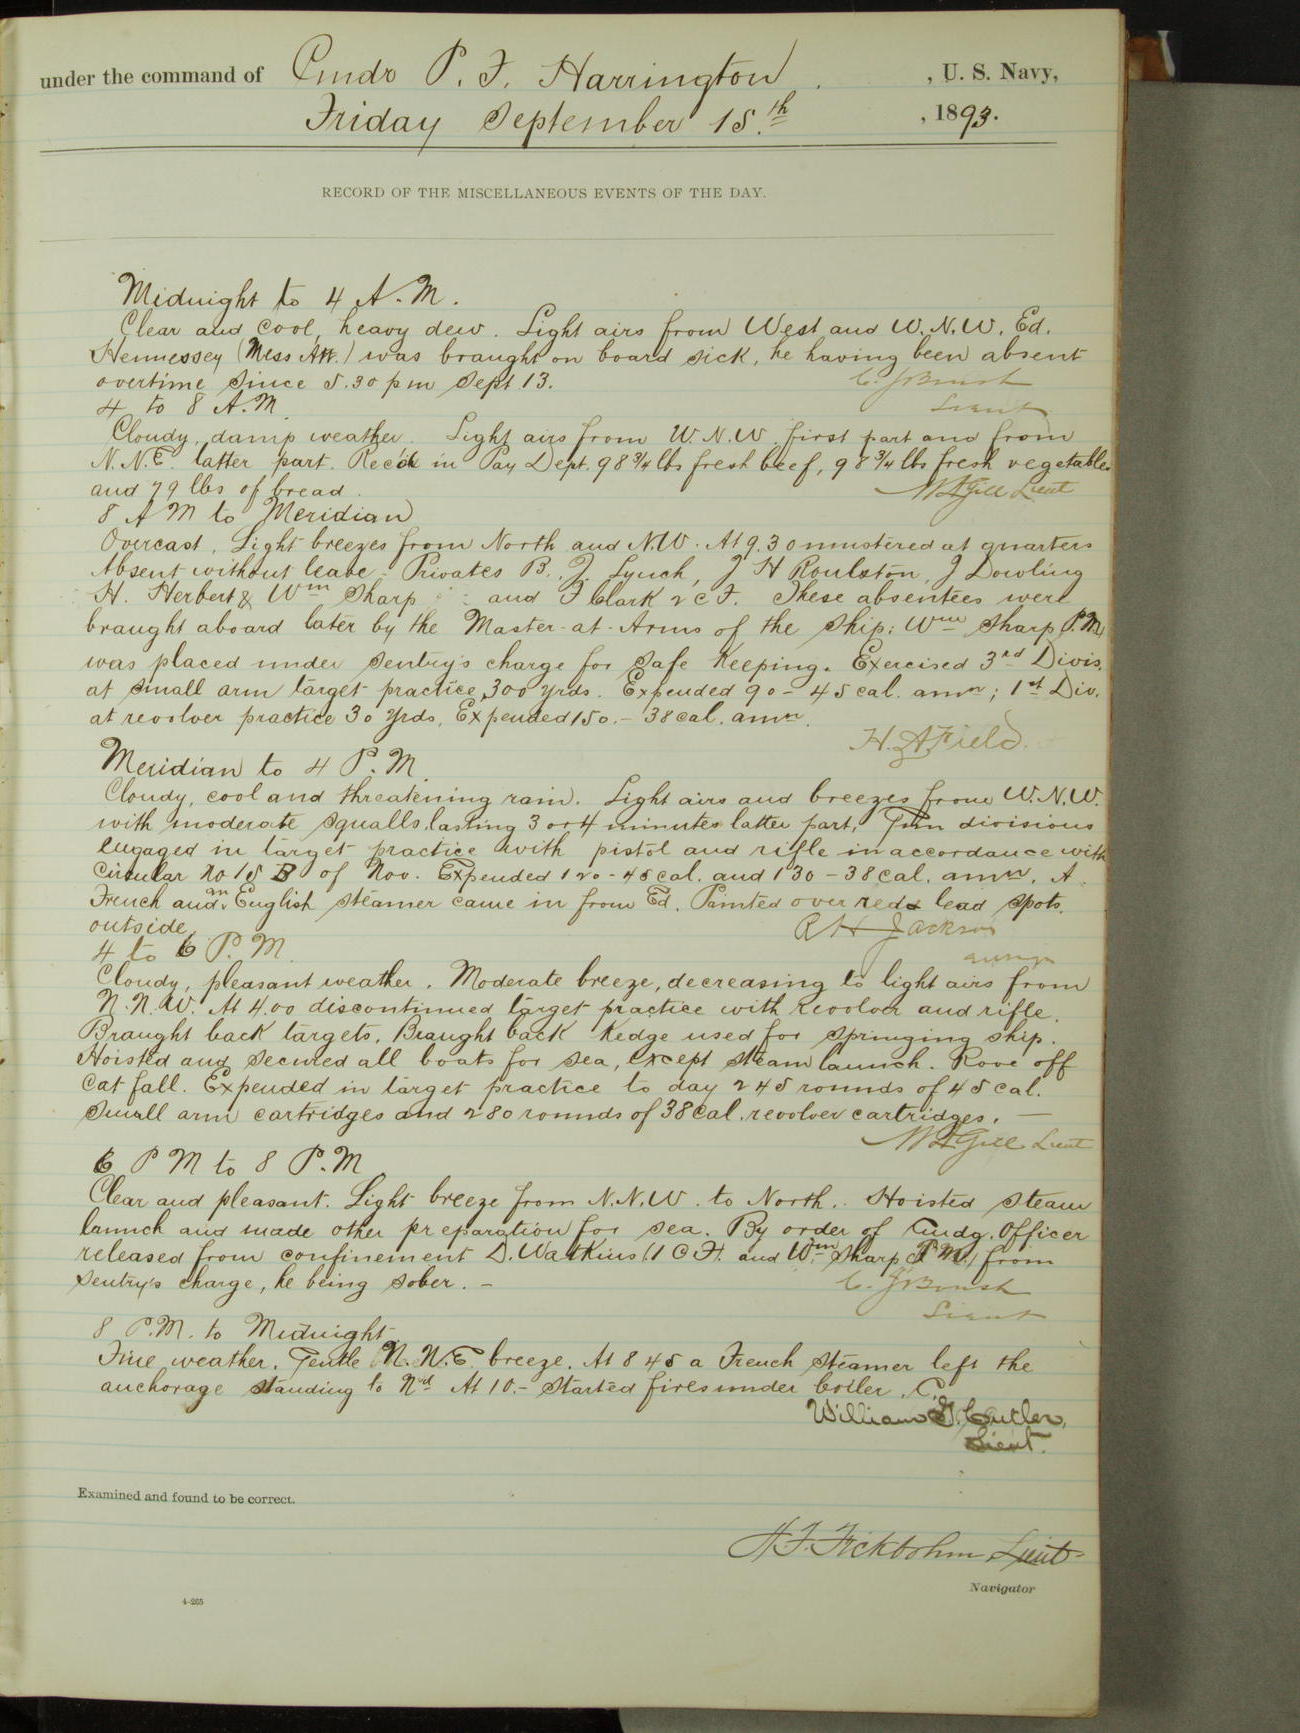 under the command of Cmdr P. F. Harrington, U. S. Navy,
Friday September 15.th, 1893.
RECORD OF THE MISCELLANEOUS EVENTS OF THE DAY.
Midnight to 4 A.M.
Clear and cool, heavy dew. Light airs from West and W.N.W. Ed.
Hennessey (Mess Att.) was braught on board sick, he having been absent
overtime since 5.30 pm Sept 13.
C. J. Boush
Lieut
4 to 8 A.M.
Cloudy, damp weather. Light airs from W.N.W. first part and from
N.N.E. latter part. Rec'd in Pay Dept. 98 3/4 lbs fresh beef, 98 3/4 lbs fresh vegetables
and 79 lbs of bread.
Gill Lieut
8 A M to Meridian
Overcast. Light breezes from North and N.W. At 9.30 mustered at quarters
Absent without leave - Privates B. J. Lynch, J H Roulston, J Dowling
H. Herbert & Wm Sharp and F Clark 2 C F. These absentees were
braught aboard later by the Master-at-Arms of the ship; Wm Sharp P.M.
was placed under sentry's charge for safe keeping. Exercised 3rd Divis.
at small arm target practice, 300 yrds. Expended 90 - 45 cal. amn; 1st Div.
at revolver practice 30 yrds. Expended 150. - 38 cal. amn.
H. A. Field.
Meridian to 4 P.M.
Cloudy, cool and threatening rain. Light airs and breezes from W.N.W.
with moderate squalls lasting 3 or 4 minutes latter part. Gun divisions
engaged in target practice with pistol and rifle in accordance with
Circular No 15 B of Nov. Expended 120 - 45 cal. and 130 - 38 cal. amn. A
French and an English steamer came in from Ed. Painted over red lead spots.
outside.
R H Jackson
Ensign
4 to 6 P.M.
Cloudy, pleasant weather. Moderate breeze, decreasing to light airs from
N.N.W. At 4.00 discontinued target practice with revolver and rifle.
Braught back targets. Braught back kedge used for springing ship.
Hoisted and secured all boats for sea, except steam launch. Rove off
Cat fall. Expended in target practice to day 245 rounds of 45 cal.
small arm cartridges and 280 rounds of 38 Cal. revolver cartridges. -
Gill Lieut
6 P M to 8 P.M
Clear and pleasant. Light breeze from N.N.W. to North. Hoisted steam
launch and made other preparation for sea. By order of Cmdg. Officer
released from confinement D. Watkins (1 C F. and Wm Sharp (P M) from
sentry's charge, he being sober. -
C. J. Boush
Lieut
8 P.M. to Midnight.
Fine weather. Gentle N.N.E. breeze. At 8 45 a French steamer left the
anchorage standing to Nd At 10.- started fires under boiler C.
William G. Cutler,
Lieut.
Examined and found to be correct.
H. F. Fickbohm Lieut
Navigator
4-265